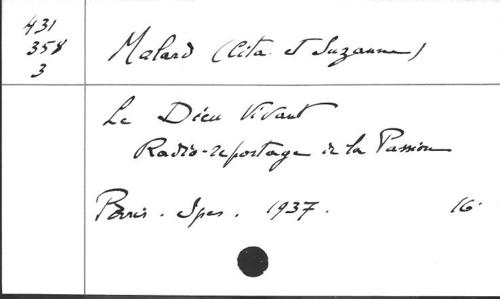 431
358
3
Malard (Cita et Suzanne)
Le Dieu Vivant
Radio-reportage de la Passion
Paris. Spes. 1937. 16°